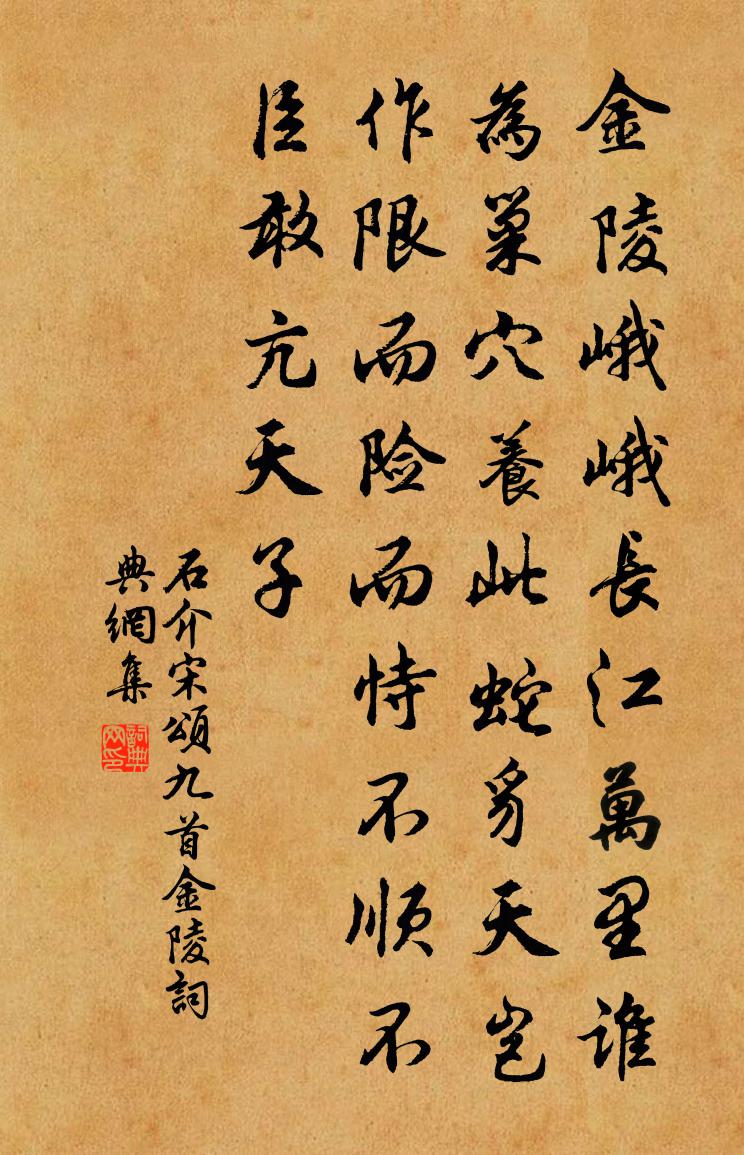 金陵峨峨長江萬里誰
為巢穴養此蛇豸天豈
作限而险而恃不順不
臣敢亢天子
石介宋頌九首金陵詞
典網集
詞典
网印